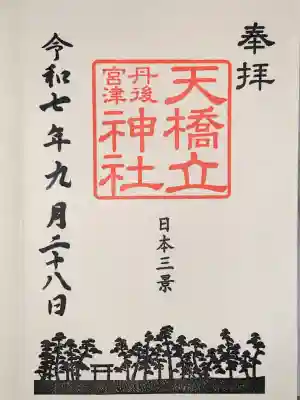 奉拝
天橋立
丹後
宮津
神社
日本三景
令和七年九月二十八日